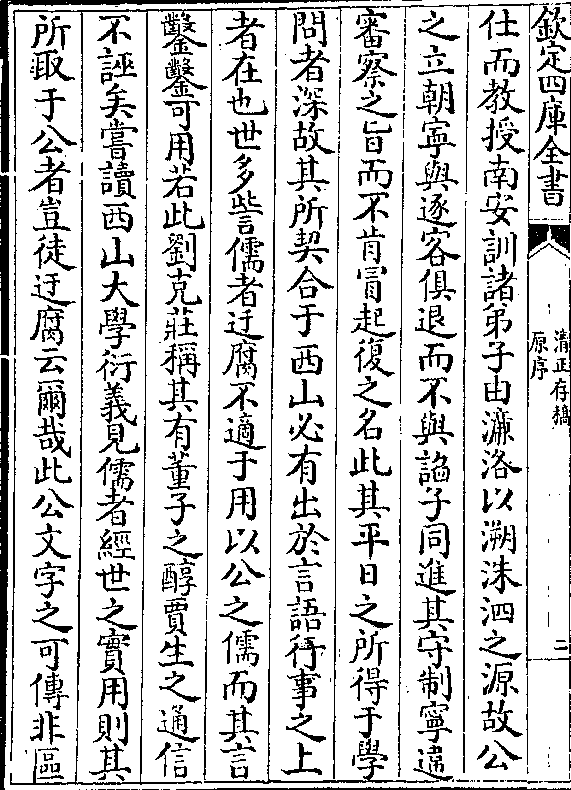 欽定四庫全書
清正存稿
原序
二
仕而教授南安訓諸弟子由濂洛以溯洙泗之源故公
之立朝寧與逐客俱退而不與諂子同進其守制寧違
審察之旨而不肯冒起復之名此其平日之所得于學
問者深故其所契合于西山必有出於言語行事之上
者在也世多訾儒者迂腐不適于用以公之儒而其言
鑿鑿可用若此劉克莊稱其有董子之醇賈生之通信
不誣矣嘗讀西山大學衍義見儒者經世之實用則其
所取于公者豈徒迂腐云爾哉此公文字之可傳非區